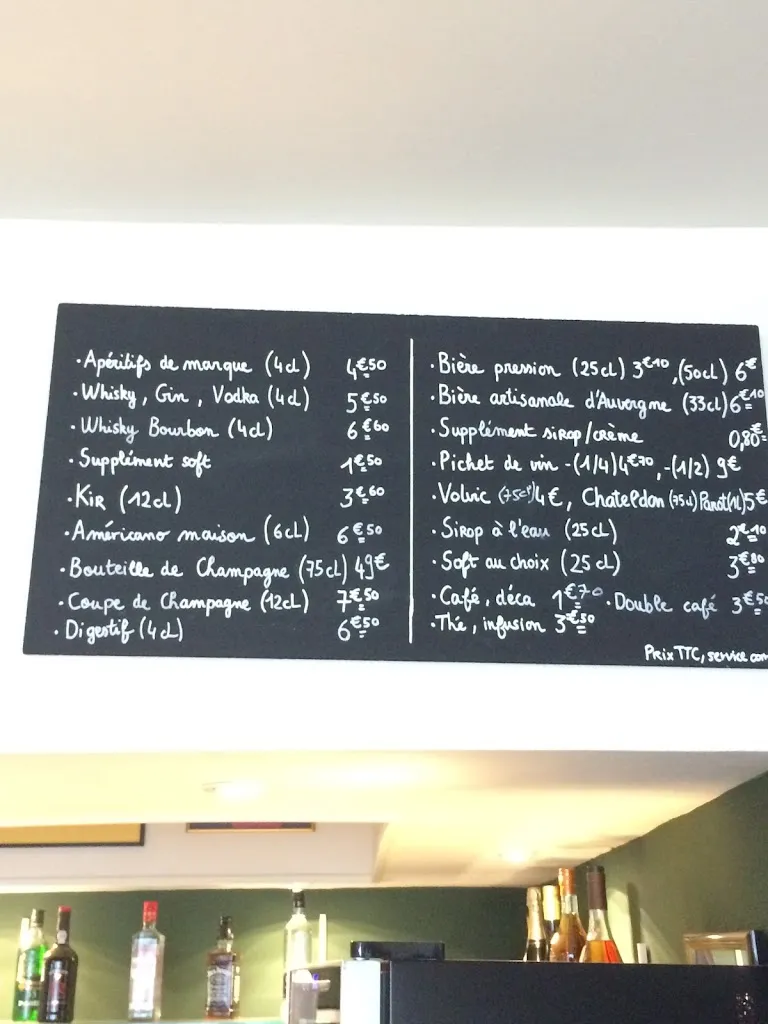 · Apéritifs de marque (4cl) 4€50
· Whisky, Gin, Vodka (4cl) 5€50
· Whisky Bourbon (4cl) 6€60
· Supplément soft 1€50
· Kir (12cl) 3€60
· Américano maison (6cl) 6€50
· Bouteille de Champagne (75cl) 49€
· Coupe de Champagne (12cl) 7€50
· Digestif (4cl) 6€50
· Bière pression (25cl) 3€10, (50cl) 6€
· Bière artisanale d'Auvergne (33cl) 6€10
· Supplément sirop/crème 0,80€
· Pichet de vin -(1/4) 4€70, -(1/2) 9€
· Volvic (75cl) 4€, Chateldon (75cl) Parot (1L) 5€
· Sirop à l'eau (25cl) 2€10
· Soft au choix (25 cl) 3€80
· Café, déca 1€70 · Double café 3€50
· Thé, infusion 3€50
Prix TTC, service com